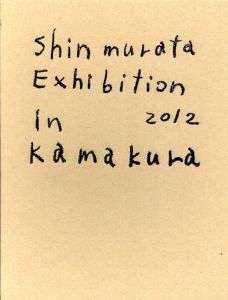 Shin murata
Exhibition
in 2012
Kamakura